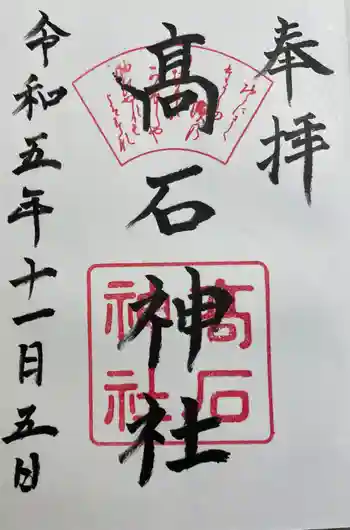 奉拝
髙石神社
令和五年十一日五日
髙石
神社